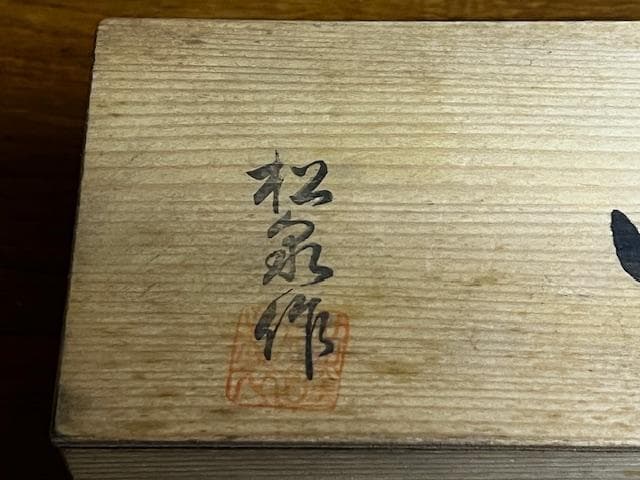 松泉作